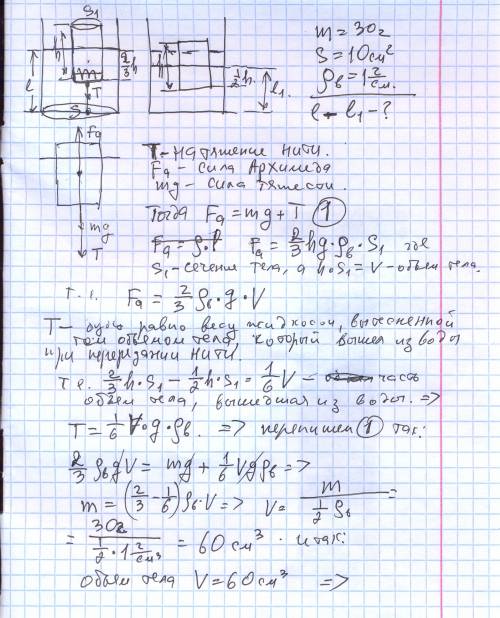 S₁
h
l
2/3 h
T
S
h
1/2 h
l₁
m = 30г
S = 10см²
ρв = 1 г/см.
l - l₁ - ?
Fа
mg
T
T - натяжение нити.
Fа - сила Архимеда
mg - сила тяжести.
Тогда Fа = mg + T (1)
Fа = 2/3 hg·ρв·S₁ где
S₁ - сечение тела, а h·S₁ = V - объем тела.
т.е. Fа = 2/3 ρв·g·V
T - будет равно весу жидкости, вытесненной
тем объемом тела, который вышел из воды
при перерезании нити.
т.е. 2/3 h·S₁ - 1/2 h·S₁ = 1/6 V - часть
объем тела, вышедшая из воды. =>
T = 1/6 V·g·ρв. => перепишем (1) так:
2/3 ρв g V = mg + 1/6 V g ρв =>
m = (2/3 - 1/6) ρв·V => V = m / (1/2 ρв) =
= 30г / (1/2 · 1 г/см³) = 60 см³. итак:
объем тела V = 60 см³ =>